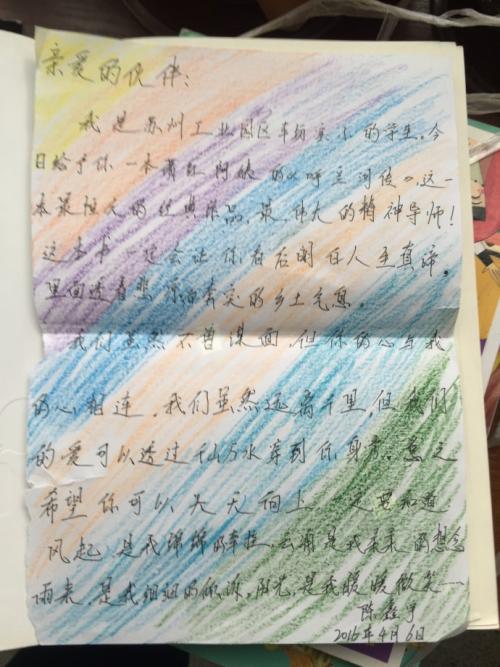 亲爱的伙伴：
我是苏州工业园区车坊实小的学生，今
日给予你一本萧红阿姨的《呼兰河传》，这一
本最恒久的经典作品，最伟大的精神导师！
这本书一定会让你在右明白人至真谛。
里面透着悲凉的乡土气息。
我们虽然不曾谋面，但你的心与我
的心相连，我们虽然远离千里，但我们
的爱可以透过千山万水穿到你身旁。总之
希望你可以天天向上，一定要知道
风起，是我绵绵的牵挂，云涌是我的想念
雨来，是我细细的倾诉，阳光，是我暖暖微笑一
2016年4月6日